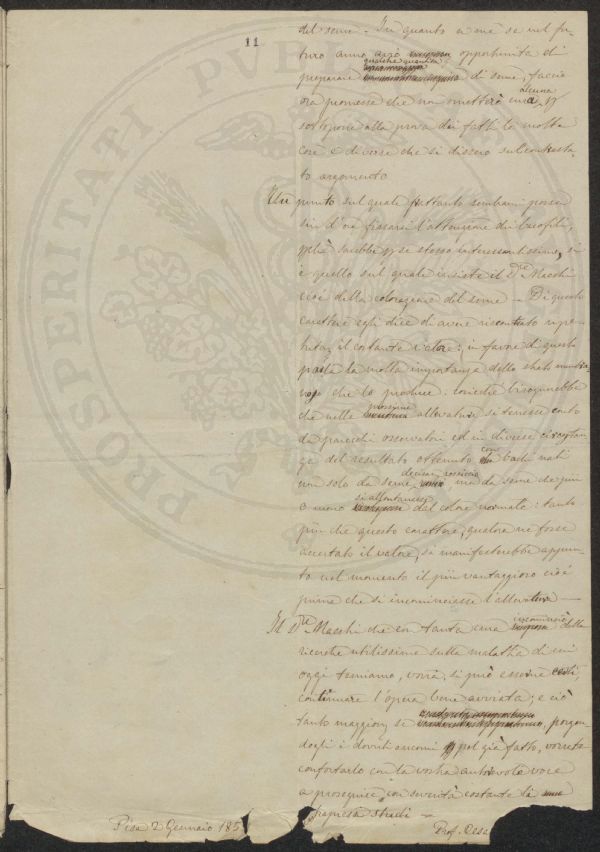 11
del seme. In quanto a me se nel fu-
turo anno avrò opportunità di
qualche quantità
preparare di seme, faccio
ora promessa che non ometterò cura alcuna p
sottoporre alla prova dei fatti le molte
cose e diverse che si dissero sul contrasta-
to argomento
Un punto sul quale frattanto sembrami possa
sin d'ora fissarsi l'attenzione dei bacofili,
perchè sarebbe p se stesso interessantissimo, si
è quello sul quale insiste il Dre Macchi
cioè della colorazione del seme — Di questo
carattere egli dice di avere riscontrato ripe-
il costante valore: in favore di questo
parla la molta importanza dello stato
che lo produce. cosicchè bisognerebbe
prossime
che nelle allevature si tenesse conto
da parecchi osservatori ed in diverse circostan-
ze del resultato ottenuto con bachi nati
non solo da seme ma da seme che più
si allontanasse
o meno dal colore normale: tanto
più che questo carattere, qualora ne fosse
accertato il valore, si manifesterebbe appun-
to nel momento il più vantaggioso cioè
prima che si incominciasse l'allevatura —
Il Dre Macchi che con tanta cura incominciò delle
ricerche utilissime sulla malattia di cui
oggi temiamo, vorrà, si può esserne certi,
continuare l'opera bene avviata; e ciò
tanto maggiorm se , porgen-
dogli i dovuti encomi pel già fatto, vorrete
confortarlo con la vostra autorevole voce
a proseguire con severità costante li
impresi studi —
Pisa 2 Gennaio 185
Prof. Cesa
PROSPERITATI PUBLI